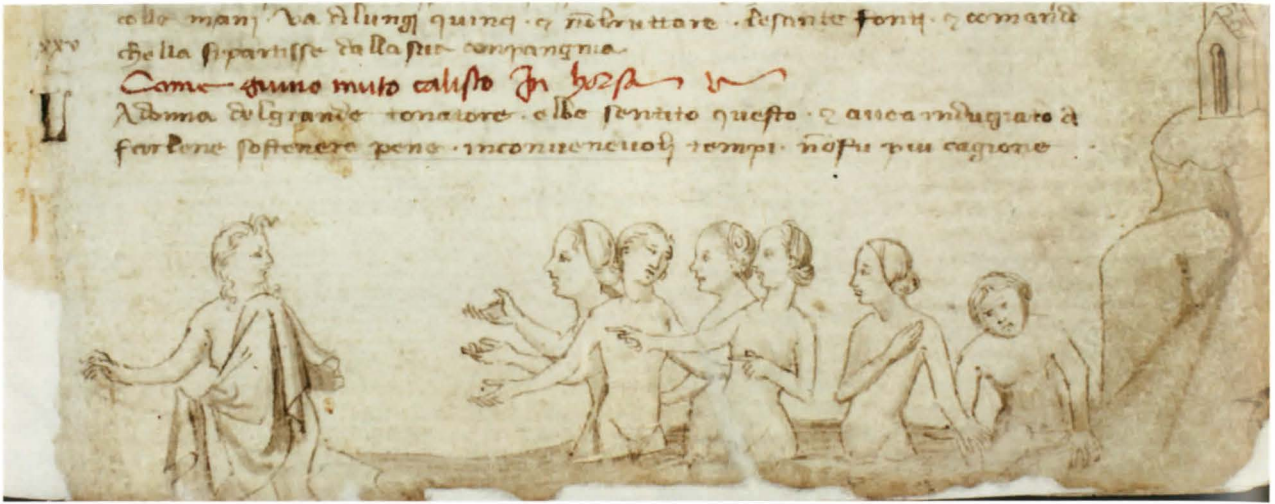 colle mani · Va dilungi quinci · & nōbruttare · lesante fonti · & comando
xxv
chella sipartisse dalla sua conpangnia
Come giuno muto calisto In horsa
L
Adonna delgrande tonatore · ebbe sentito questo · & avea indugiato a
farlene sostenere pene · inconvenevoli tempi · nōfu piu cagione